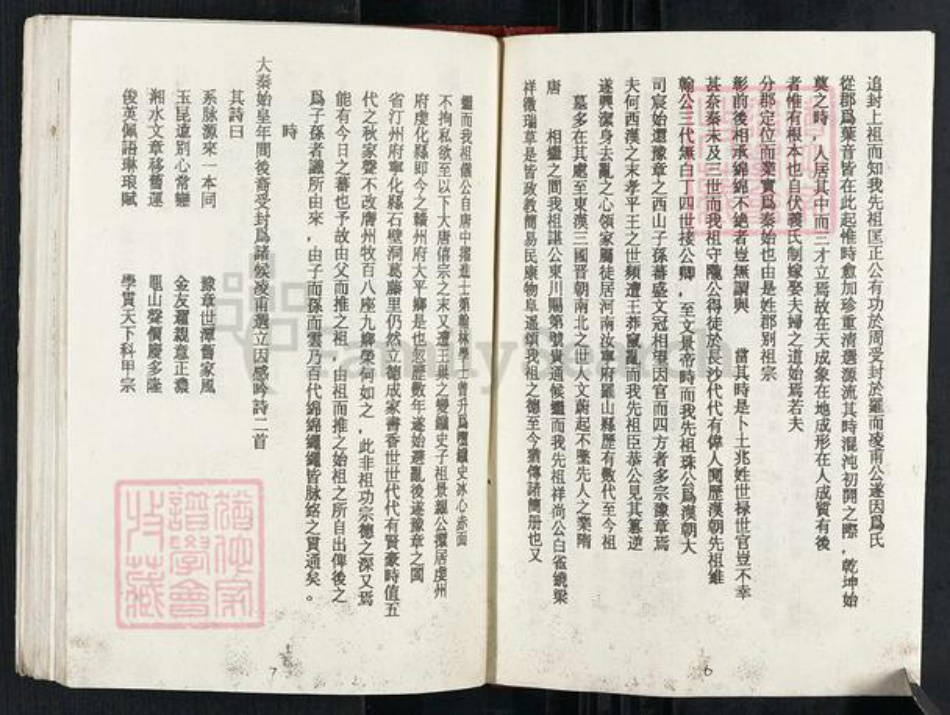 追封上祖而知我先祖匡正公有功於周受封於羅而凌甫公遂因爲氏
從郡爲葉音皆在此起惟時愈加珍重清選源流其時混沌初開之際,乾坤始
奠之時,人居其中而三才立焉故在天成象在地成形在人成質有後
者惟有根本也自伏羲氏制嫁娶夫婦之道始焉若夫
分郡定位而業實爲秦始也由是姓郡別祖宗
彰前後相承綿綿不絕者豈無謂與 當其時是卜土兆姓世祿世官豈不幸
甚奈秦未及三世而我祖守隴公得徒於長沙代代有偉人閱歷漢朝先祖維
翰公三代無白丁四世接公卿,至文景帝時而我先祖珠公爲漢朝大
司宸始還豫章之西山子孫蕃盛文冠相望因官而四方者多宗豫章焉
夫何西漢之末孝平王之世頻遭王莽竄亂而我先祖臣恭公見其篡逆
遂興潔身去亂之心領家屬徒居河南汝寧府羅山縣歷有數代至今祖
墓多在其處至東漢三國晉朝南北之世人文蔚起不墜先人之業隋
唐 相繼之間我祖諶公東川賜第號貴通候繼而我先祖祥尚公白雀繞梁
祥徵瑞草是皆政教簡易民康物阜遜頌我祖之德至今猶傳諸簡册也又
6
繼而我祖儀公自唐中擢進士第翰林學士曾升爲
不拘私欲至以下大唐僖宗之末又遭王巢之變鐵史子祖景羅公攜居虔州
府虔化縣即今之贛州府大平鄉是也忽歷數年遂始避亂後遂豫章之國
省汀州府寧化縣石壁洞葛藤里仍然立德成家書香世世代代有賢豪時值五
代之秋家聲不改廣州牧百八座九鄉榮何如之,此非祖功宗德之深又焉
能有今日之蕃也予故由父而推之祖 由祖而推之始祖之所自出俾後之
爲子孫者識所由來,由子而孫而雲乃百代綿綿繩繩皆脉絡之貫通矣。
時
大秦始皇年間後裔受封爲諸候凌甫選立因感吟詩二首
其詩曰
系脉源來一本同 豫章世澤舊家風
玉昆遠別心常戀 金友邇親意正濃
湘水文章移舊運 龜山聲價慶多隆
俊英佩語琳琅賦 學貫天下科甲宗
7